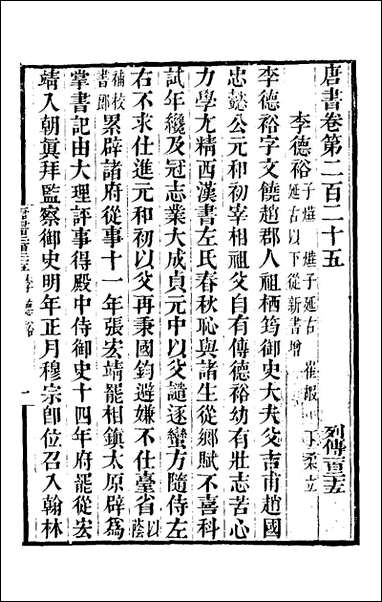 唐書卷第二百二十五
列傳百二十五
李德裕 子燁 燁子延古 崔嘏 丁柔立
延古以下從新書增
李德裕字文饒趙郡人祖栖筠御史大夫父吉甫趙國
忠懿公元和初宰相祖父自有傳德裕幼有壯志苦心
力學尤精西漢書左氏春秋恥與諸生從鄉賦不喜科
試年纔及冠志業大成貞元中以父譴逐蠻方隨侍左
右不求仕進元和初以父再秉國鈞避嫌不仕臺省以蔭
補校書郎累辟諸府從事十一年張宏靖罷相鎮太原辟爲
掌書記由大理評事得殿中侍御史十四年府罷從宏
靖入朝眞拜監察御史明年正月穆宗卽位召入翰林
一